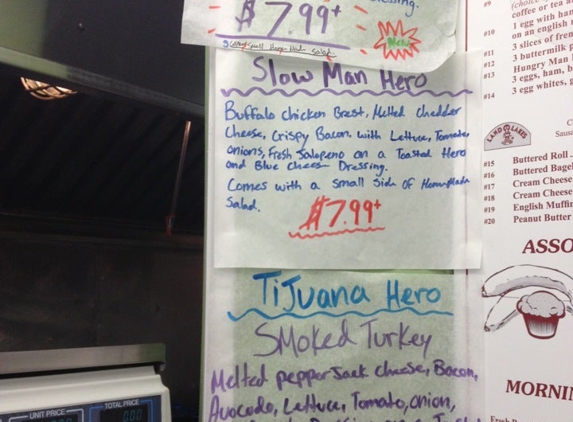 Dressing.
$7.99+
New!
Slow Man Hero
Buffalo chicken Brest, Melted Cheddar
Cheese, Crispy Bacon with Lettuce, Tomato,
onions, Fresh Jalapeno on a Toasted Hero
and Blue Cheese Dressing.
Comes with a small side of Home-Made
Salad.
$7.99+
Tijuana Hero
Smoked Turkey
Melted pepper Jack cheese, Bacon,
Avocado, Lettuce, Tomato, onion,
UNIT PRICE
TOTAL PRICE
0.00
#9
coffee or tea a
#10 1 egg with han
on an english
#11 3 slices of fren
#12 3 buttermilk p
#13 Hungry Man
3 eggs, ham, b
#14 3 egg whites, g
LAND O LAKES
Sausa
#15 Buttered Roll
#16 Buttered Bagel
#17 Cream Cheese
#18 Cream Cheese
#19 English Muffin
#20 Peanut Butter
ASSO
MORNIN